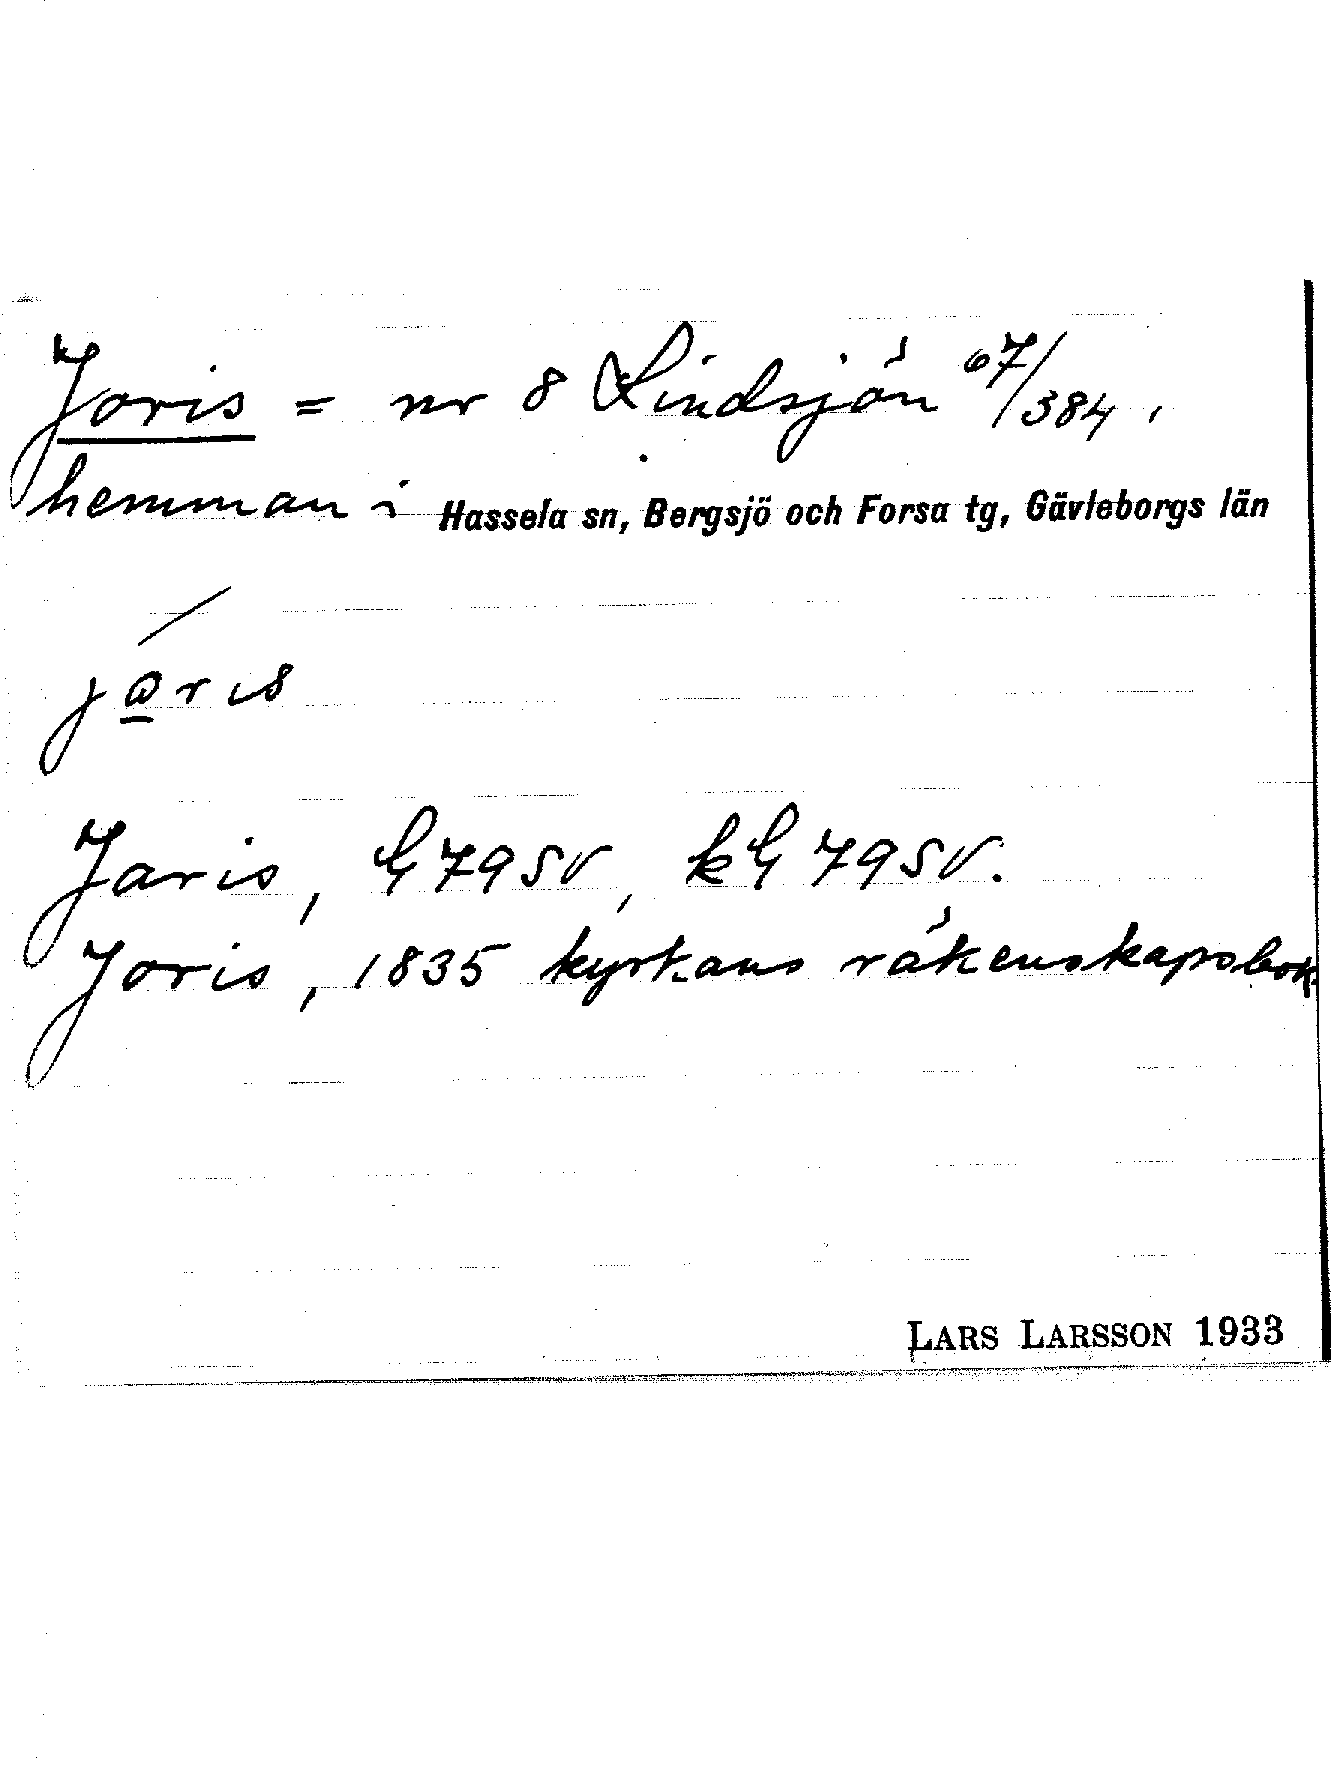 Joris = nr 8 Lindsjön 67/384,
hemman i Hassela sn, Bergsjö och Forsa tg, Gävleborgs län
ja̲ris
Jaris, G 79 SV, kG 79 SV.
Joris, 1835 kyrkans räkenskapsbok.
LARS LARSSON 1933